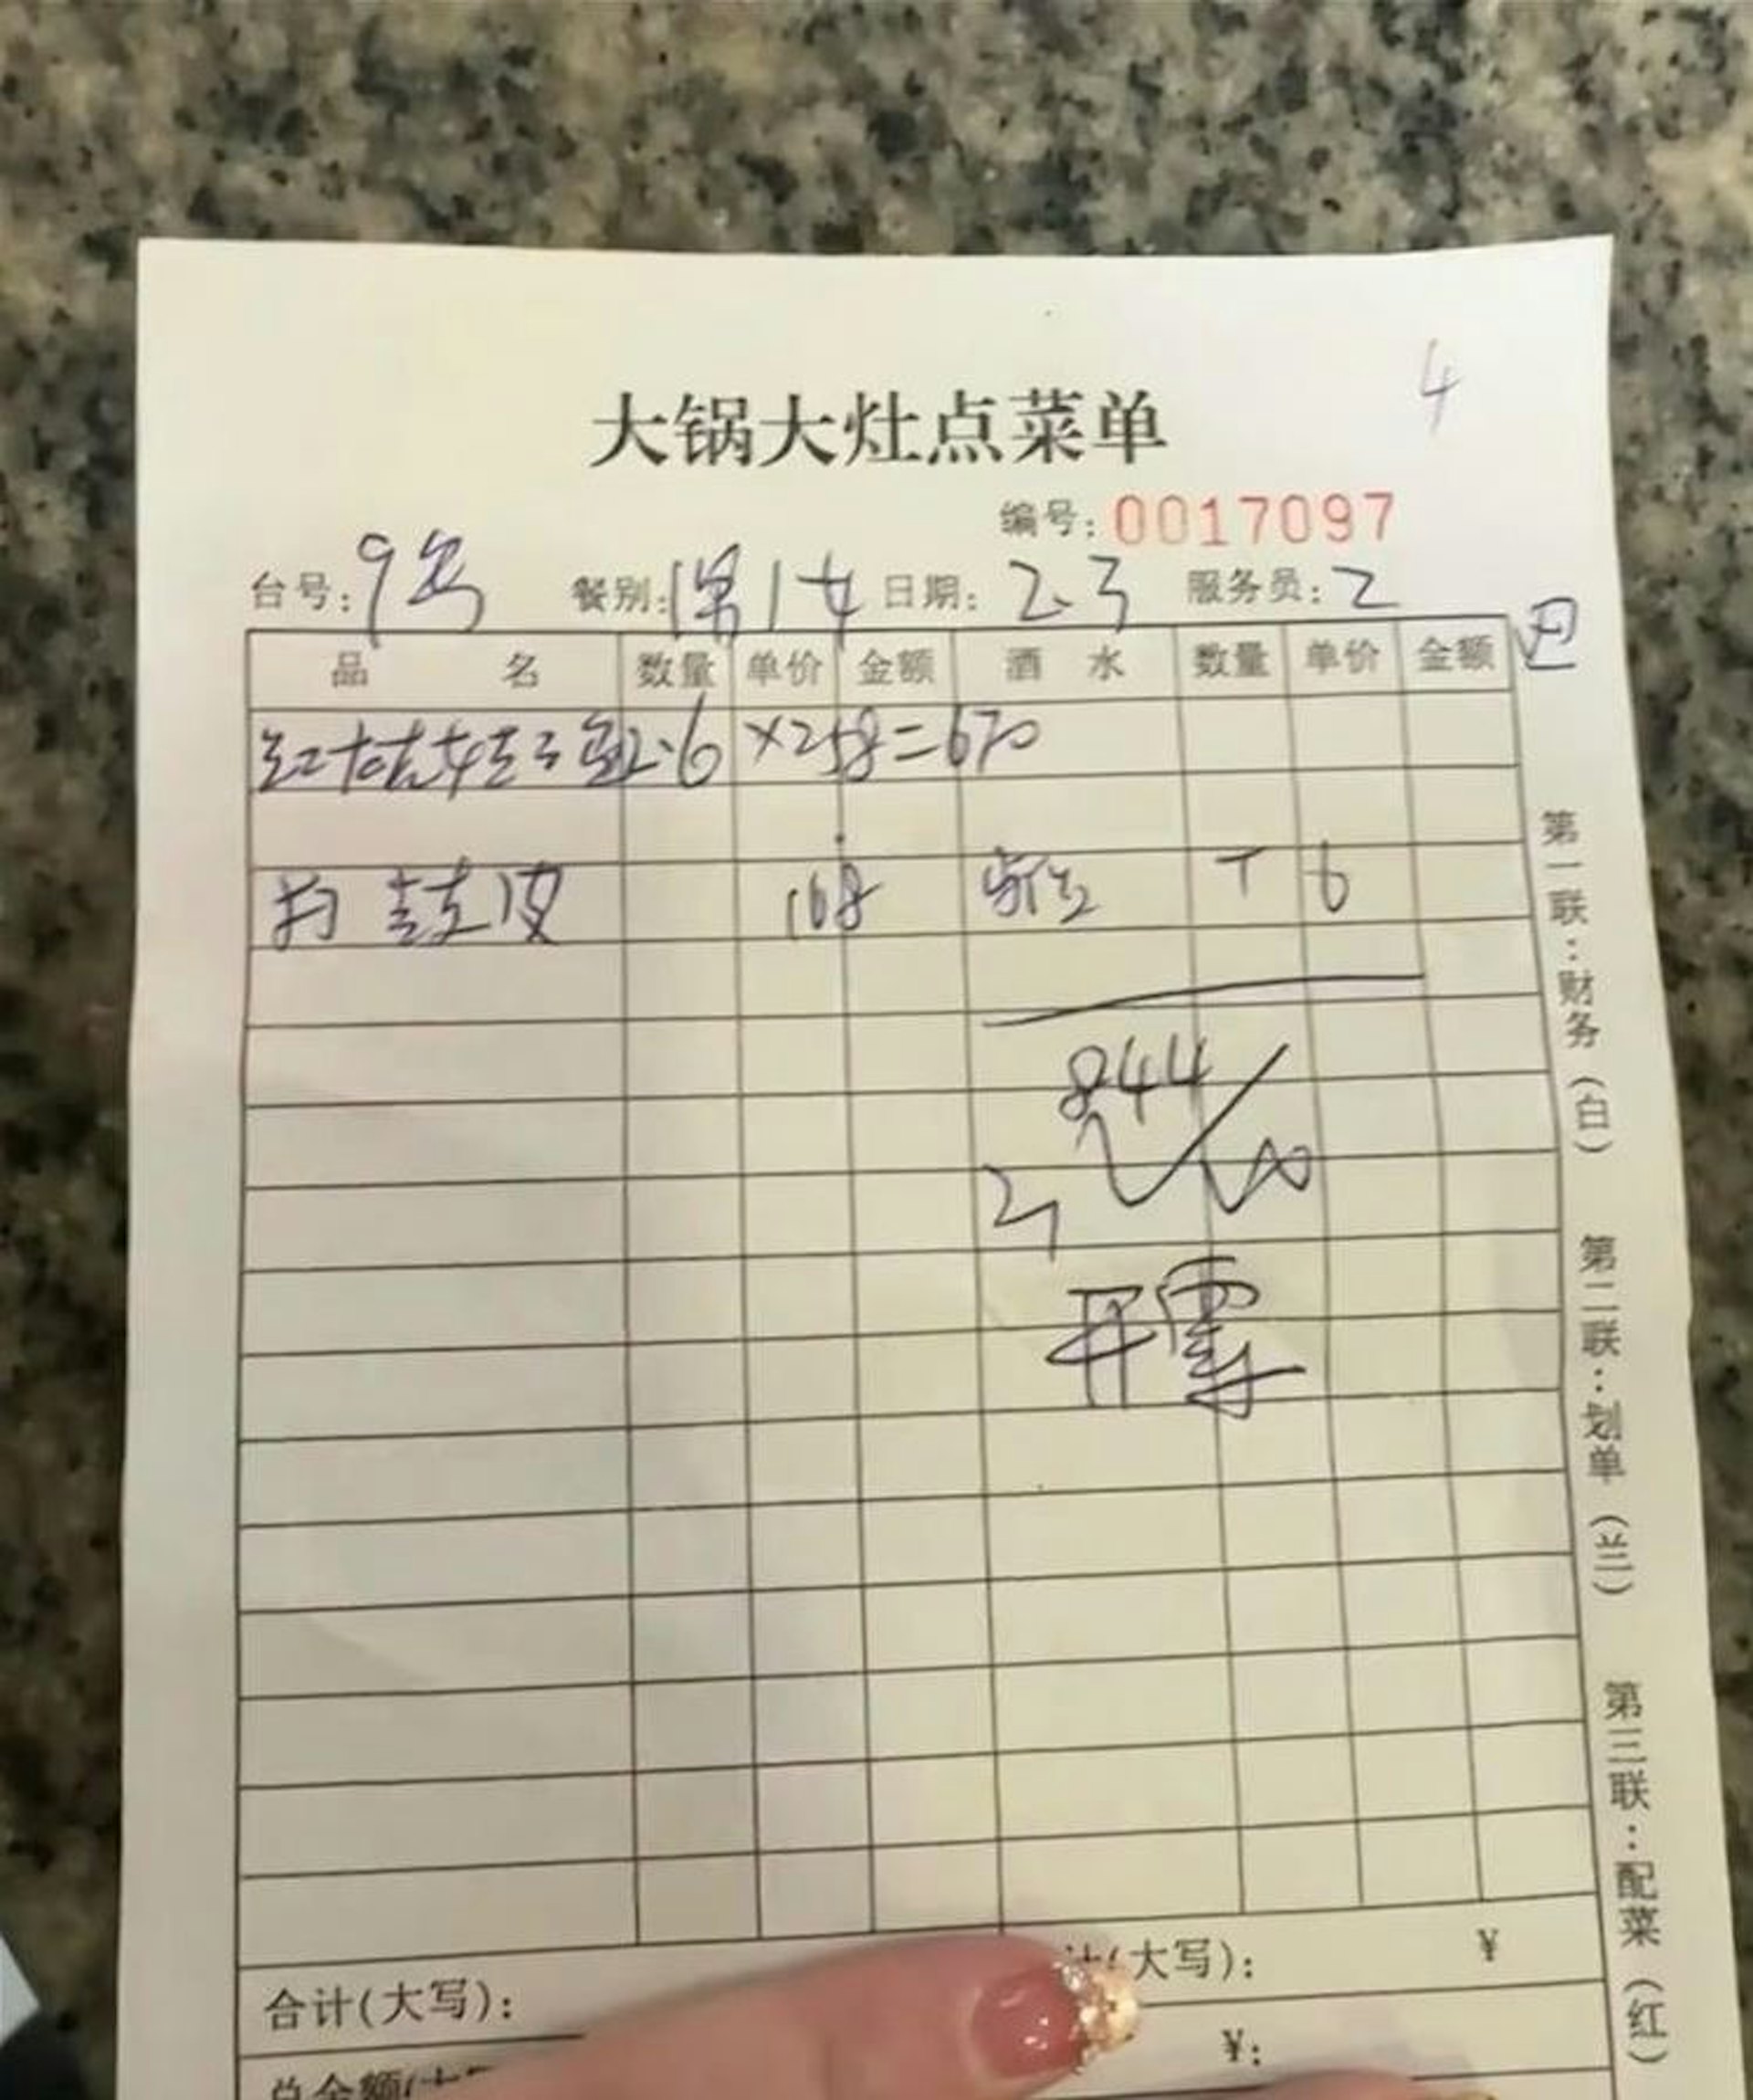 4
大锅大灶点菜单
编号: 0017097
台号: 9号 餐别: 日期: 2.3 服务员: 2
品 名 数量 单价 金额 酒 水 数量 单价 金额
2.6 ×258=670
扣 鼓皮 168 餐位 + 6
844
开票
合计(大写): 计(大写): ¥
¥:
总金额(大
第一联:财务(白) 第二联:划单(兰) 第三联:配菜(红)